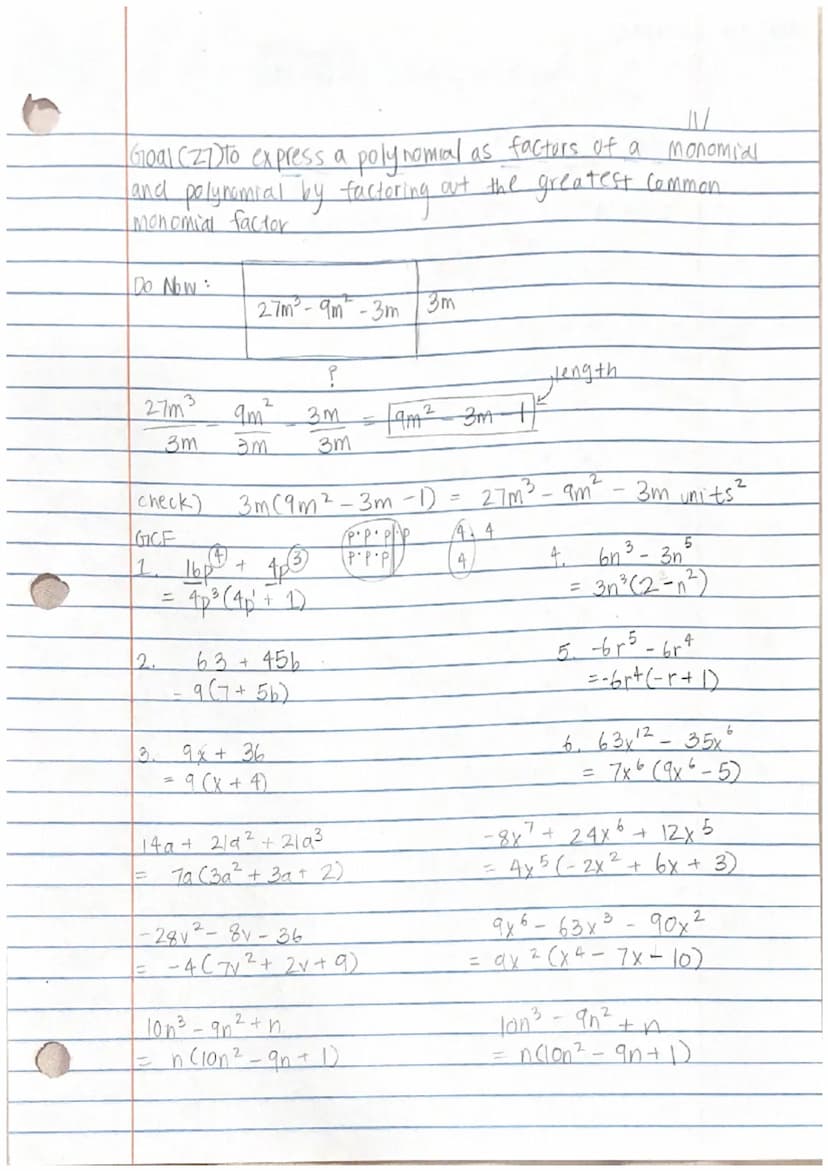 11/
Goal (27) to express a polynomial as factors of a monomial
and polynomial by factoring out the greatest common
monomial factor
Do Now:
27m³ - 9m² - 3m 3m
?
length
27m³/3m - 9m²/3m - 3m/3m = 9m² - 3m - 1
check) 3m(9m² - 3m - 1) = 27m³ - 9m² - 3m units²
GCF
p·p·p·p
p·p·p
4·4
4
1. 16p⁴ + 4p³
= 4p³(4p¹ + 1)
2. 63 + 45b
= 9(7 + 5b)
3. 9x + 36
= 9(x + 4)
4. 6n³ - 3n⁵
= 3n³(2 - n²)
5. -6r⁵ - 6r⁴
= -6r⁴(-r + 1)
6. 63x¹² - 35x⁶
= 7x⁶(9x⁶ - 5)
14a + 21a² + 21a³
= 7a(3a² + 3a + 2)
-8x⁷ + 24x⁶ + 12x⁵
= 4x⁵(-2x² + 6x + 3)
-28v² - 8v - 36
= -4(7v² + 2v + 9)
9x⁶ - 63x³ - 90x²
= 9x²(x⁴ - 7x - 10)
10n³ - 9n² + n
= n(10n² - 9n + 1)
10n³ - 9n² + n
= n(10n² - 9n + 1)